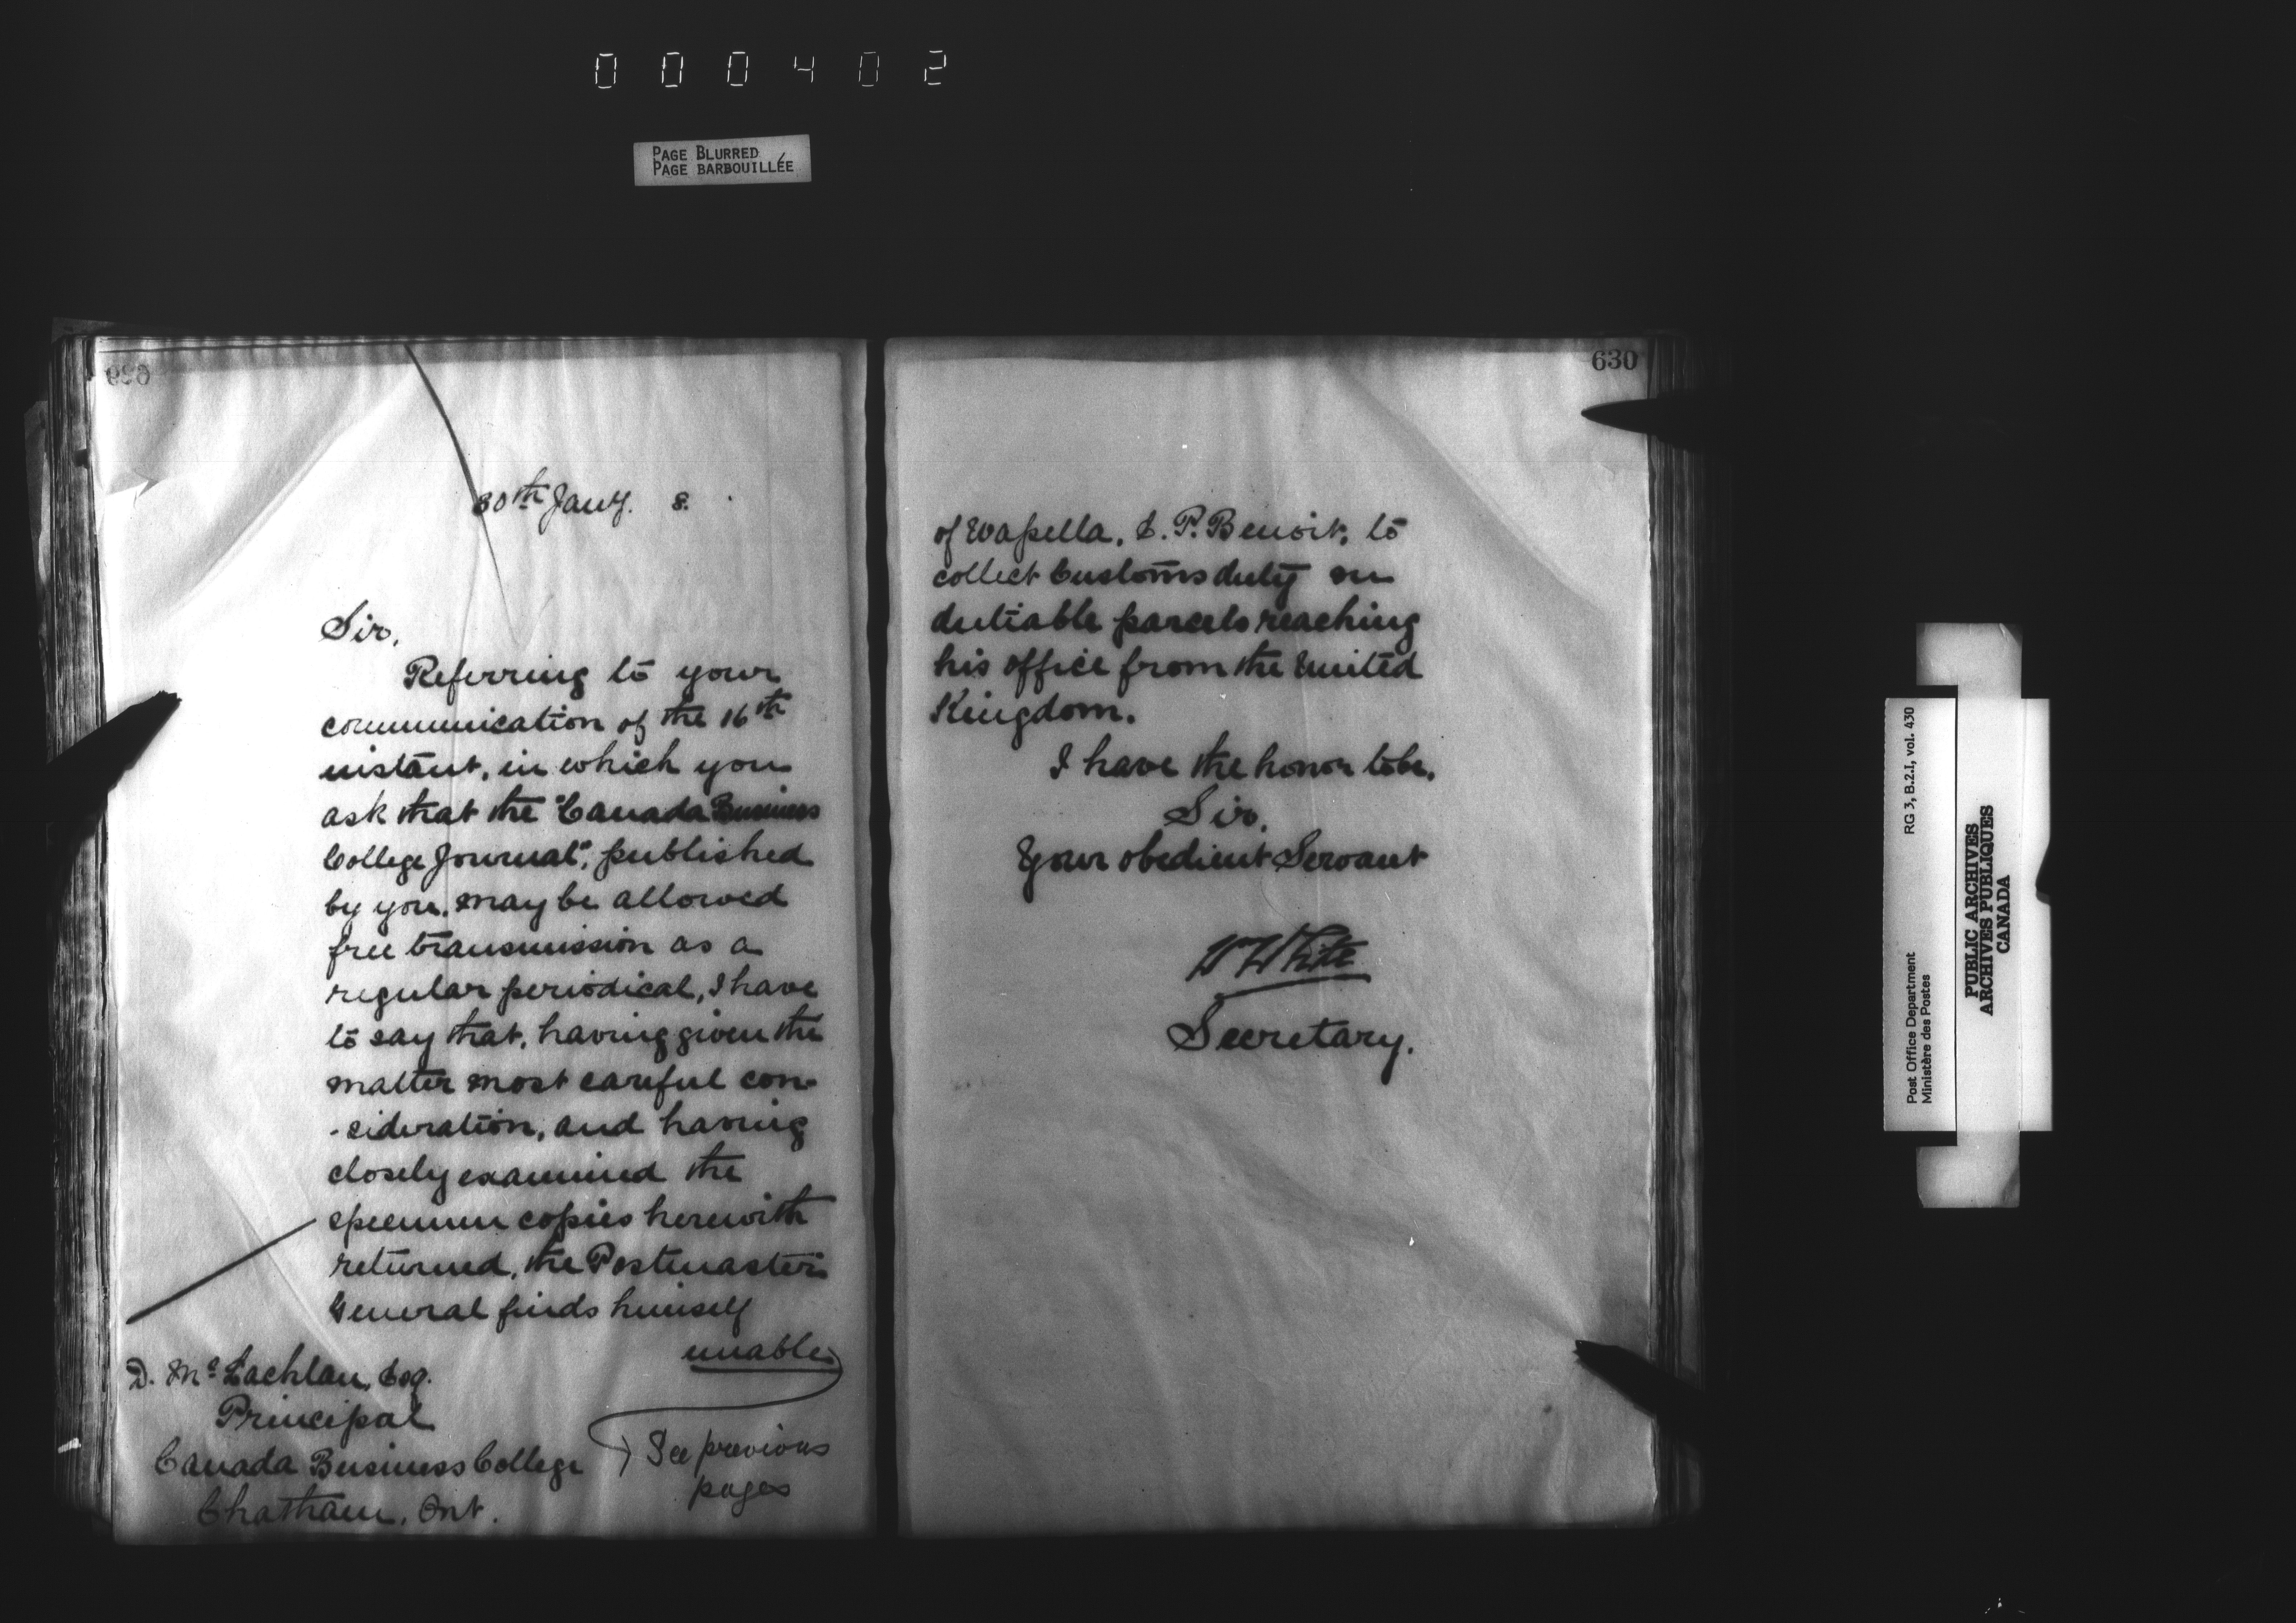 000402
PAGE BLURRED
PAGE BARBOUILLÉE
30th Jany. 8.
Sir,
Referring to your
communication of the 16th
instant, in which you
ask that the "Canada Business
College Journal", published
by you, may be allowed
free transmission as a
regular periodical, I have
to say that, having given the
matter most careful con-
-sideration, and having
closely examined the
specimen copies herewith
returned, the Postmaster
General finds himself
unable
D. Mc Lachlan, Esq.
Principal
Canada Business College
Chatham, Ont.
See previous
pages
630
of Wapella, P. Benoit, to
collect Customs duty on
dutiable parcels reaching
his office from the United
Kingdom.
I have the honor to be,
Sir,
Your obedient Servant
W White
Secretary.
Post Office Department
Ministère des Postes
RG 3, B.2.I, vol. 430
PUBLIC ARCHIVES
ARCHIVES PUBLIQUES
CANADA